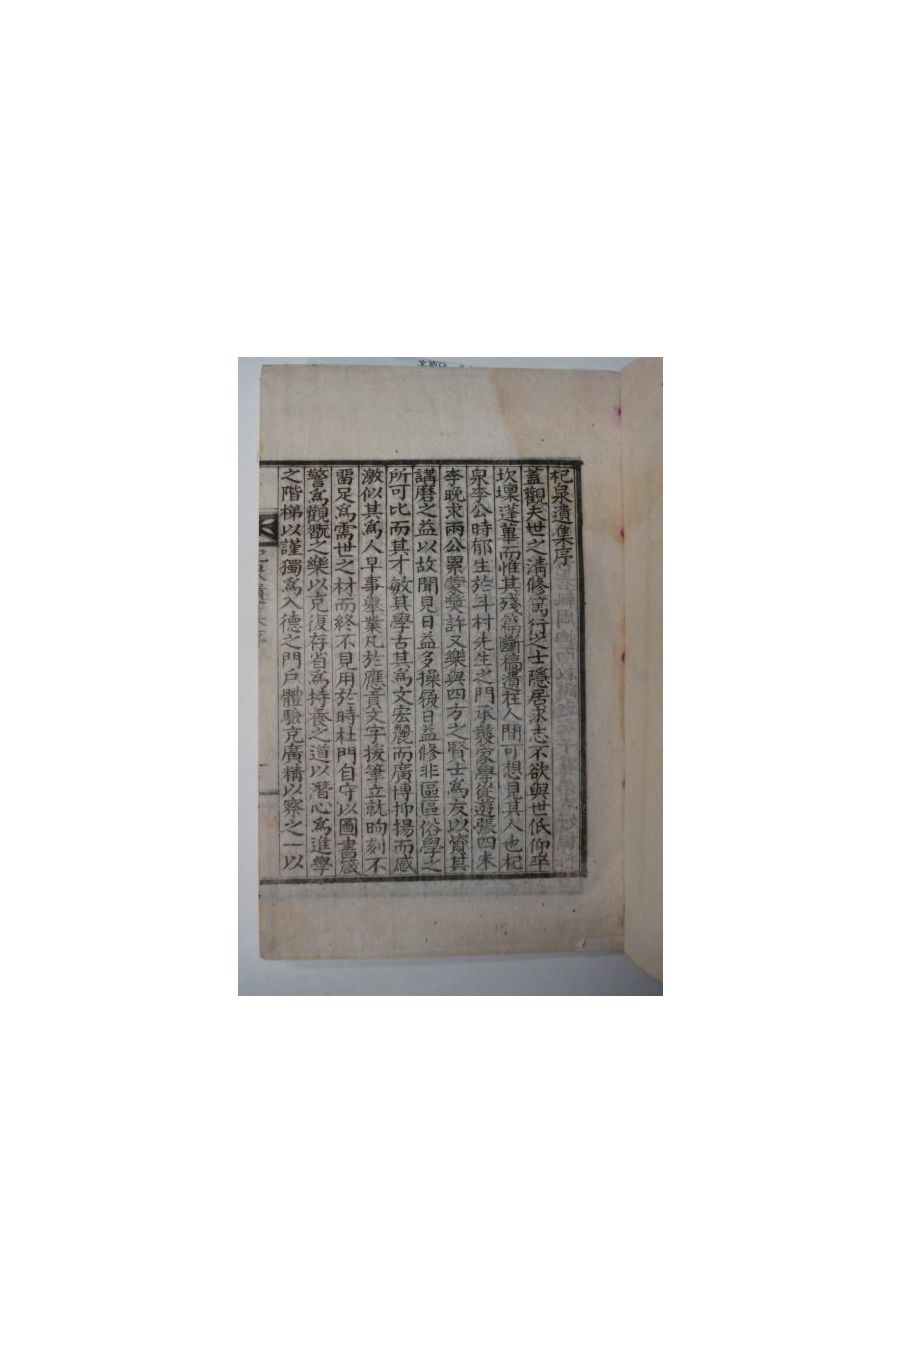 杞泉遺集序
蓋觀夫世之淸修篤行之士隱居求志不欲與世低仰卒
坎壈蓬蓽而惟其殘篇斷稿遺在人間可想見其人也杞
泉李公時郁生於斗村先生之門承襲家學從遊張四未
李晩求兩公累蒙奬許又樂與四方之賢士爲友以資其
講磨之益以故聞見日益多操履日益修非區區俗學之
所可比而其才敏其學古其爲文宏麗而廣博抑揚而感
激似其爲人早事擧業凡於應責文字援筆立就晌刻不
留足爲需世之材而終不見用於時杜門自守以圖書箴
警爲觀翫之樂以克復存省爲持養之道以潛心爲進學
之階梯以謹獨爲入德之門戶體驗克廣精以察之一以